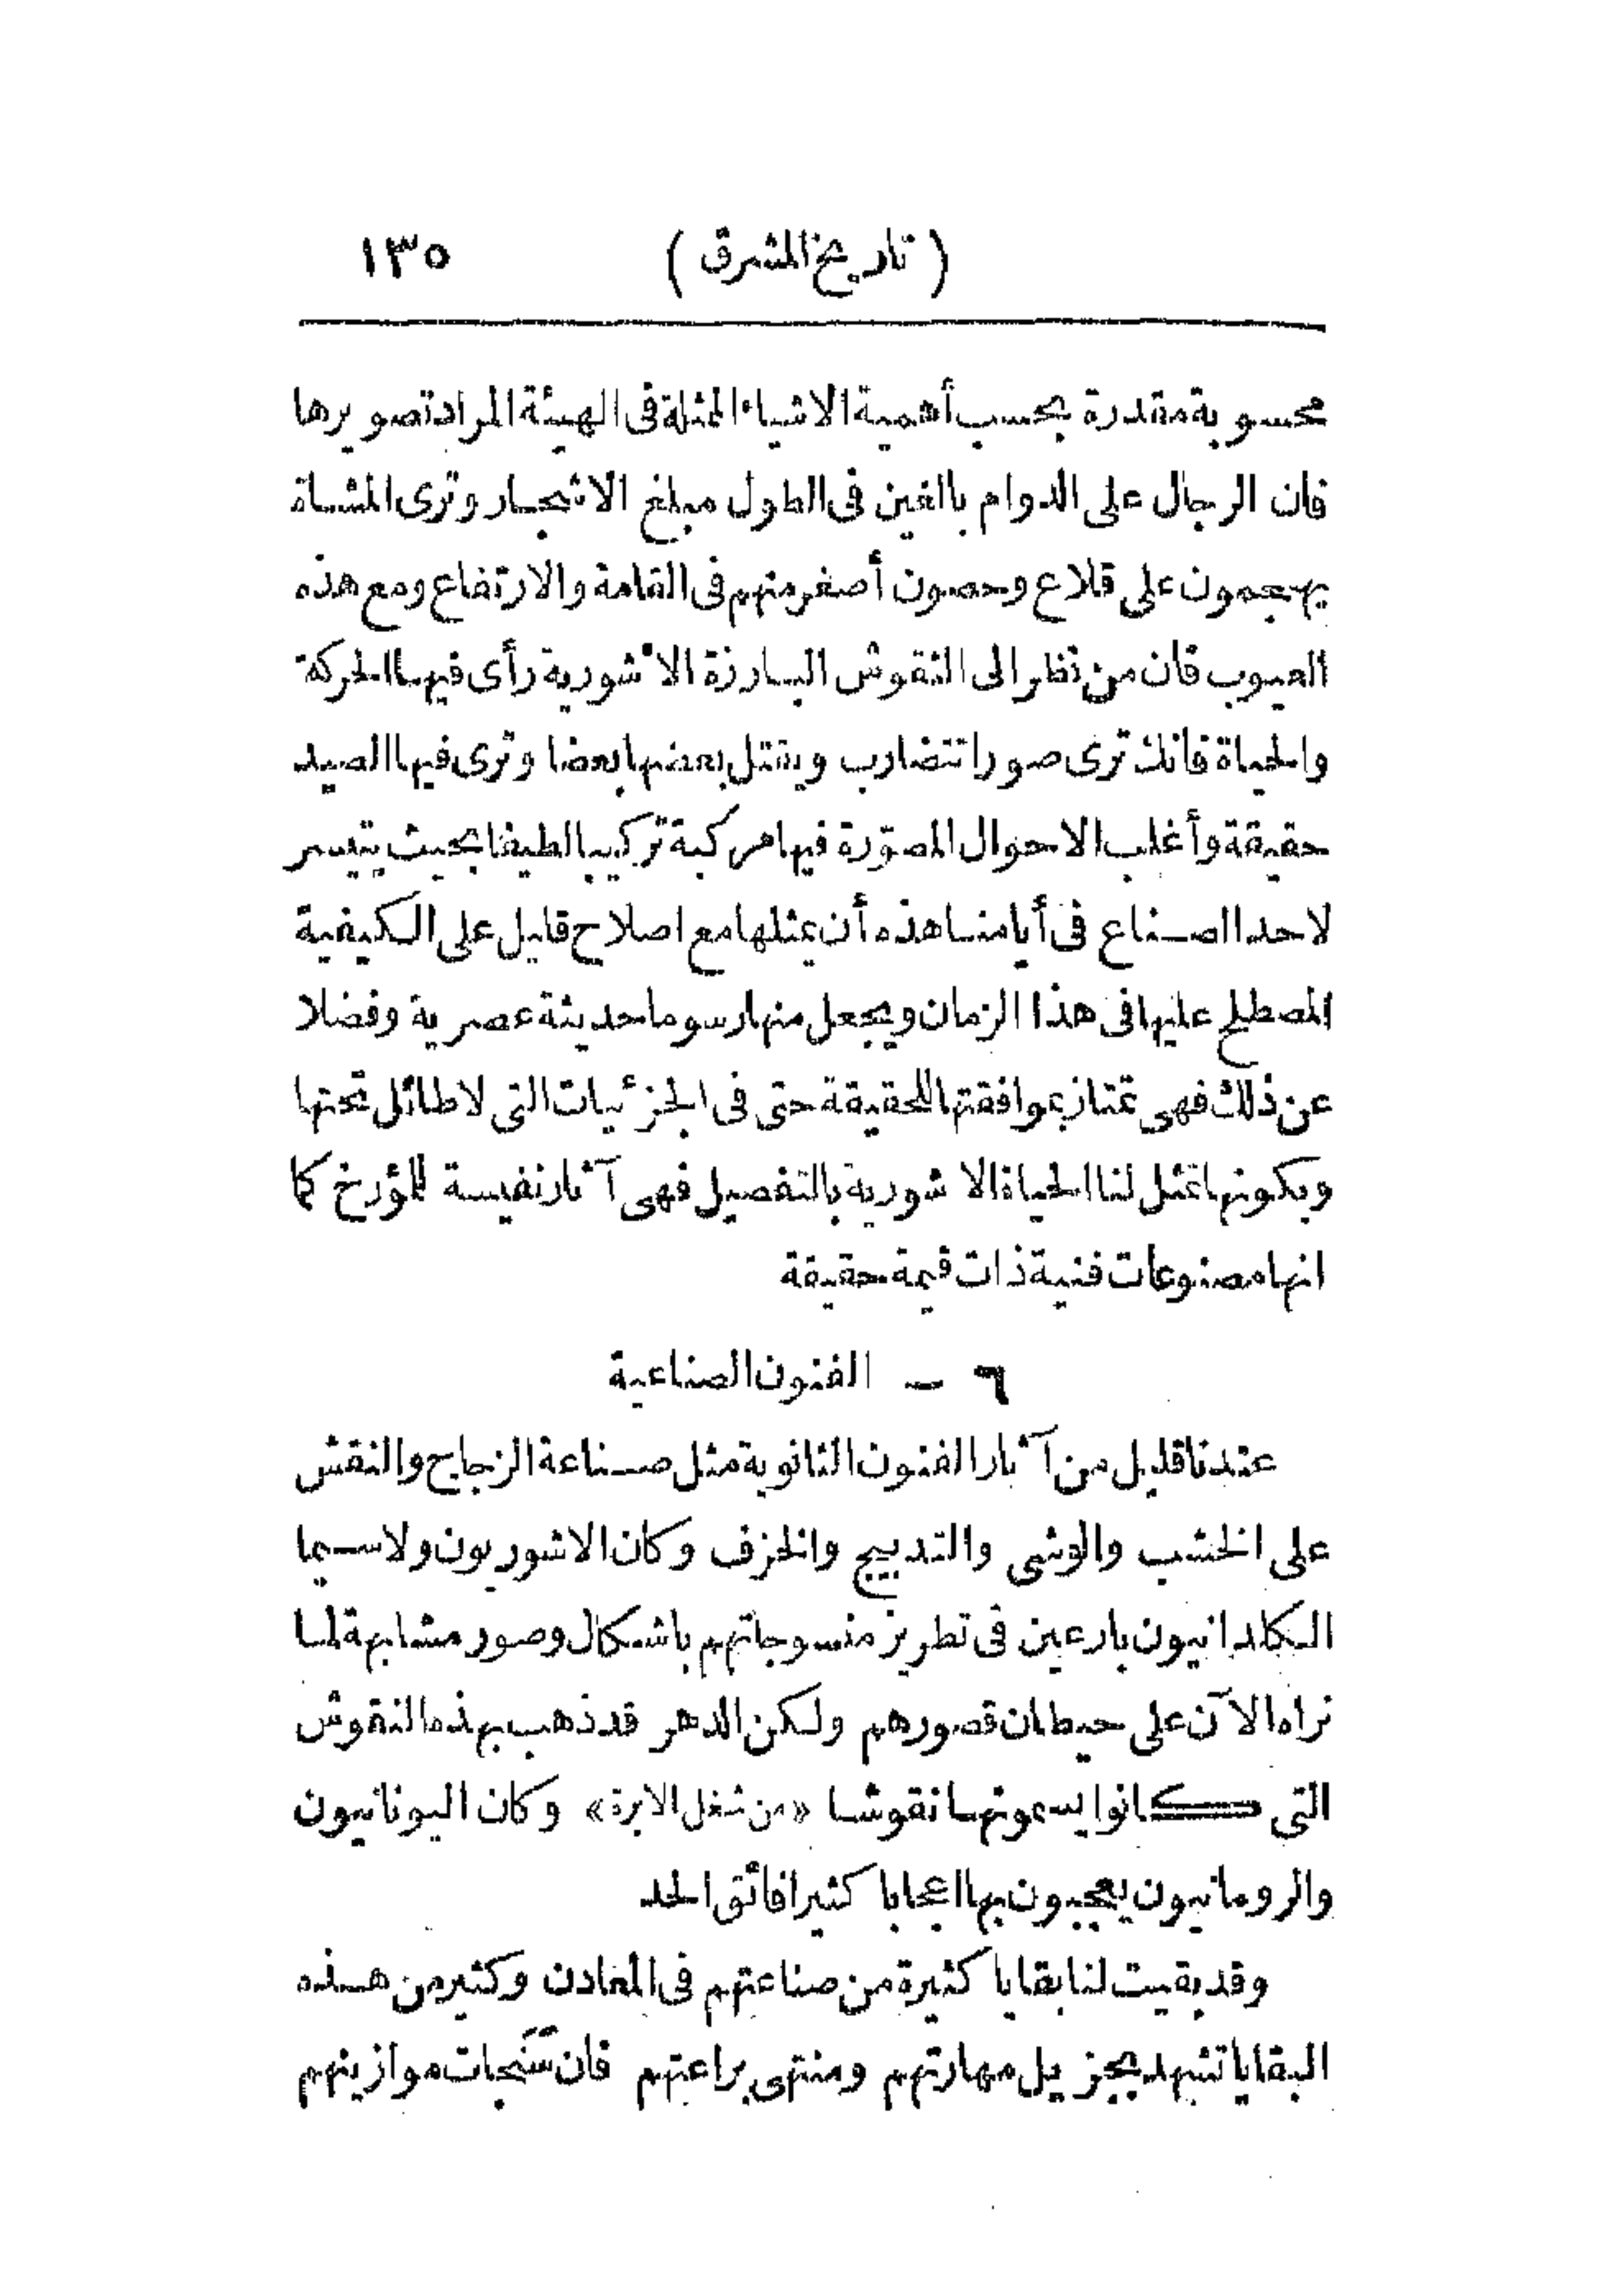 ( تاريخ المشرق ) ١٣٥
محسوبة مقدرة بحسب أهمية الاشياء الممثلة فى الهيئة المراد تصويرها
فان الرجال على الدوام بالغين فى الطول مبلغ الاشجار وترى المشاة
يهجمون على قلاع وحصون أصغر منهم فى القامة والارتفاع ومع هذه
العيوب فان من نظر الى النقوش البارزة الاشورية رأى فيها الحركة
والحياة فانك ترى صورا تتضارب ويقتل بعضها بعضا وترى فيها الصيد
حقيقة وأغلب الاحوال المصوّرة فيها مركبة تركيبا لطيفا بحيث يتيسر
لاحد الصناع فى أيامنا هذه أن يمثلها مع اصلاح قليل على الكيفية
المصطلح عليها فى هذا الزمان ويجعل منها رسوما حديثة عصرية وفضلا
عن ذلك فهى تمتاز بموافقتها للحقيقة حتى فى الجزئيات التى لا طائل تحتها
وبكونها تمثل لنا الحياة الاشورية بالتفصيل فهى آثار نفيسة للمؤرخ كما
انها مصنوعات فنية ذات قيمة حقيقة
٦ - الفنون الصناعية
عندنا قليل من آثار الفنون الثانوية مثل صناعة الزجاج والنقش
على الخشب والوشى والتدبيج والخزف وكان الاشوريون ولاسيما
الكلدانيون بارعين فى تطريز منسوجاتهم باشكال وصور مشابهة لما
نراه الآن على حيطان قصورهم ولكن الدهر قد ذهب بهذه النقوش
التى كانوا يسمونها نقوشا «من شغل الابرة» وكان اليونانيون
والرومانيون يعجبون بها اعجابا كثيرا فائق الحد
وقد بقيت لنا بقايا كثيرة من صناعتهم فى المعادن وكثير من هذه
البقايا تشهد بجزيل مهارتهم ومنتهى براعتهم فان سَنَجات موازينهم